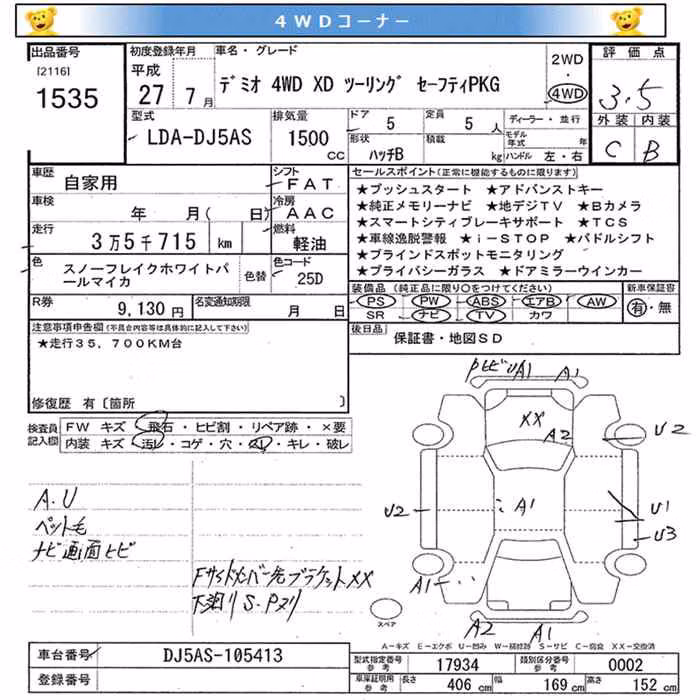 4WDコーナー
出品番号 初度登録年月 車名・グレード 2WD 評価点
[2116] 平成 デミオ 4WD XD ツーリング セーフティPKG ・
1535 27 7月 4WD 3.5
型式 排気量 ドア 定員 ディーラー・並行 外装 内装
LDA-DJ5AS 1500 5 5 人 モデル年式 年 C B
CC 形状 ハッチB 積載 kg ハンドル 左・右
車歴 自家用 シフト FAT セールスポイント(正常に機能するものに限ります)
車検 年 月( 日) 冷房 AAC ★プッシュスタート ★アドバンストキー
走行 3万5千715 km 燃料 軽油 ★純正メモリーナビ ★地デジTV ★Bカメラ
★スマートシティブレーキサポート ★TCS
★車線逸脱警報 ★i-STOP ★パドルシフト
色 スノーフレイクホワイトパールマイカ 色替 色コード 25D ★ブラインドスポットモニタリング
★プライバシーガラス ★ドアミラーウインカー
R券 9,130円 名変通知期限 月 日 装備品(純正品に限り○をつけてください) 新車保証書
PS PW ABS エアB AW 有・無
SR ナビ TV カワ
注意事項申告欄(不具合内容等は具体的に記入して下さい) 後日品 保証書・地図SD
★走行35,700KM台
修復歴 有〔箇所 〕
検査員記入欄 FW キズ・飛石・ヒビ割・リペア跡・×要
内装 キズ・汚レ・コゲ・穴・スレ・キレ・破レ
A.U
ペット毛
ナビ画面ヒビ
Fサイドメンバー先ブラケットXX
下廻リ S.Pヌリ
ヒビ A1 A1
XX
A2
U2
U2 A1 U1
U3
A1
A2 A1
スペア
A-キズ E-エクボ U-凹み W-補修跡 S-サビ C-腐食 XX-交換済
車台番号 DJ5AS-105413 型式指定番号 参考 17934 類別区分番号 参考 0002
登録番号 車庫証明用 参考 長さ 406 cm 幅 169 cm 高さ 152 cm